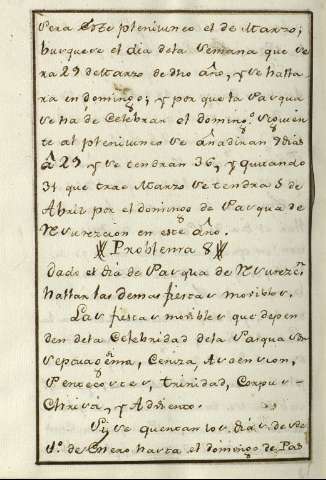 Sera este plenilunio el de Marzo;
busquese el dia dela Semana que se
ra 29 de Marzo de dho año, y se halla-
ra en domingo; y por que la Pasqua
se há de Celebrar el doming.º siguien
te al plenilunio se añadiran 7 dias
â 29 y se tendran 36, y quitando
31 que trae Marzo se tendra 5 de
Abril por el domingo de Pasqua de
Resurezcion en este año.
Problema 8
dado el dia de Pasqua de Resurez.ⁿ
hallar las demas fiestas movibles.
Las fiestas movibles que depen
den dela Celebridad dela Pasqua
Septuagesima, Ceniza, Ascension,
Pentecostes, trinidad, Corpus-
Christi, y Adviento.
Si se quentan los dias desde
1º de Enero hasta el domingo de Pas